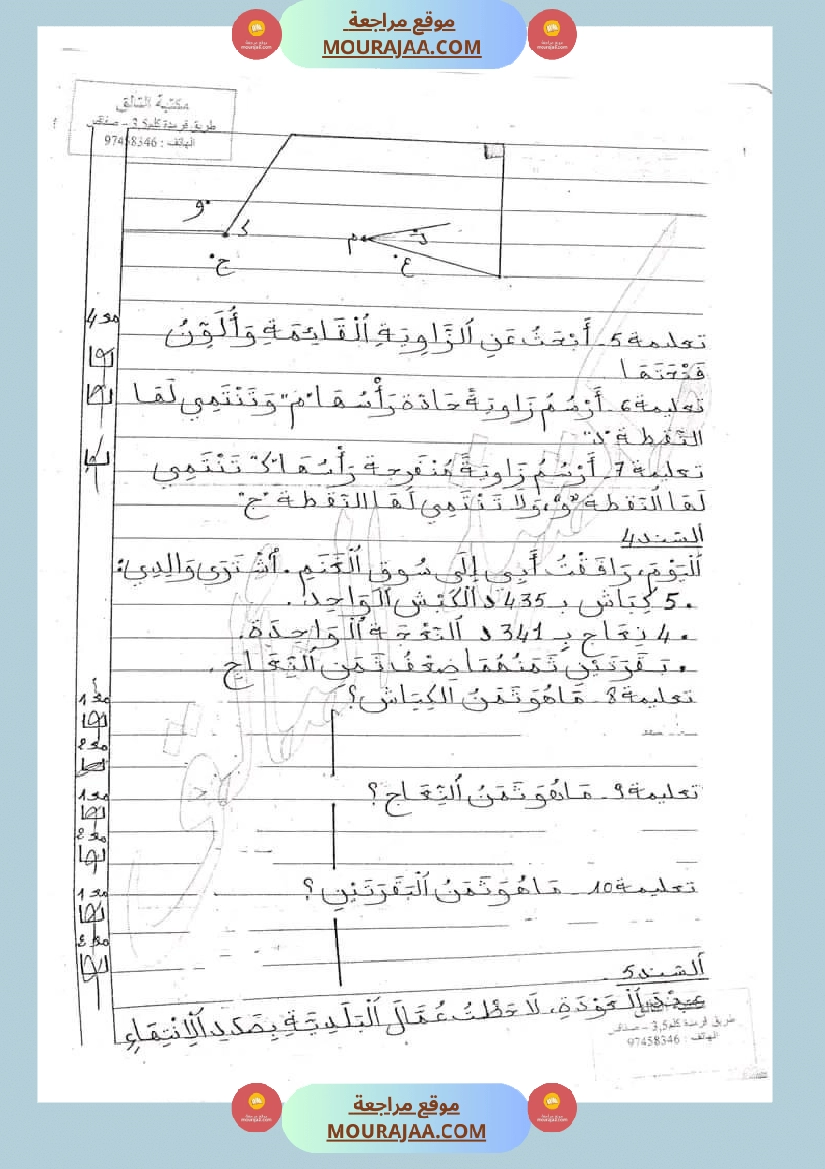 موقع مراجعة
MOURAJAA.COM
مكتبة التألق
طريق قرمدة كلم 3,5 - صفاقس
الهاتف : 97458346
و
ج
م
ع
مع4
تعليمة5- أَبْحَثُ عَنِ الزَّاوِيَةِ الْقَائِمَةِ وَأُلَوِّنُ
فَتْحَتَهَا
تعليمة6- أَرْسُمُ زَاوِيَةً حَادَّة رَأْسُهَا "م" وَتَنْتَمِي لَهَا
النّقطة
تعليمة7- أَرْسُمُ زَاوِيَةً مُنْفَرِجة رَأْسُهَا "ك" تَنْتَمِي
لَهَا النّقطة "و" وَلَا تَنْتَمِي لَهَا النّقطة "ج"
السّند4
اَلْيَوْمَ، رَافَقْتُ أَبِي إِلَى سُوقِ الْغَنَمِ. اُشْتَرَى وَالِدِي:
• 5 كِبَاش بـ 435 د الْكَبْش الْوَاحِد.
• 4 نِعَاج بِـ 341 د النَّعْجَة الْوَاحِدَة.
• بَقَرَتَيْنِ ثَمَنُهُمَا ضِعْفُ ثَمَنِ النِّعَاجِ.
تعليمة8- مَا هُوَ ثَمَنُ الكِبَاش؟
مع1أ
مع2
تعليمة9- مَا هُوَ ثَمَنُ النِّعَاج؟
مع1
مع2
تعليمة10- مَا هُوَ ثَمَنُ الْبَقَرَتَيْنِ؟
مع1
مع2
اَلسّند5
عِنْدَ الْعَوْدَةِ، لَاحَظْتُ عُمَّالَ الْبَلَدِيَّةِ بِصَدَدِ الْاِنْتِهَاءِ
طريق قرمدة كلم 3,5 - صفاقس
الهاتف : 97458346
موقع مراجعة
MOURAJAA.COM